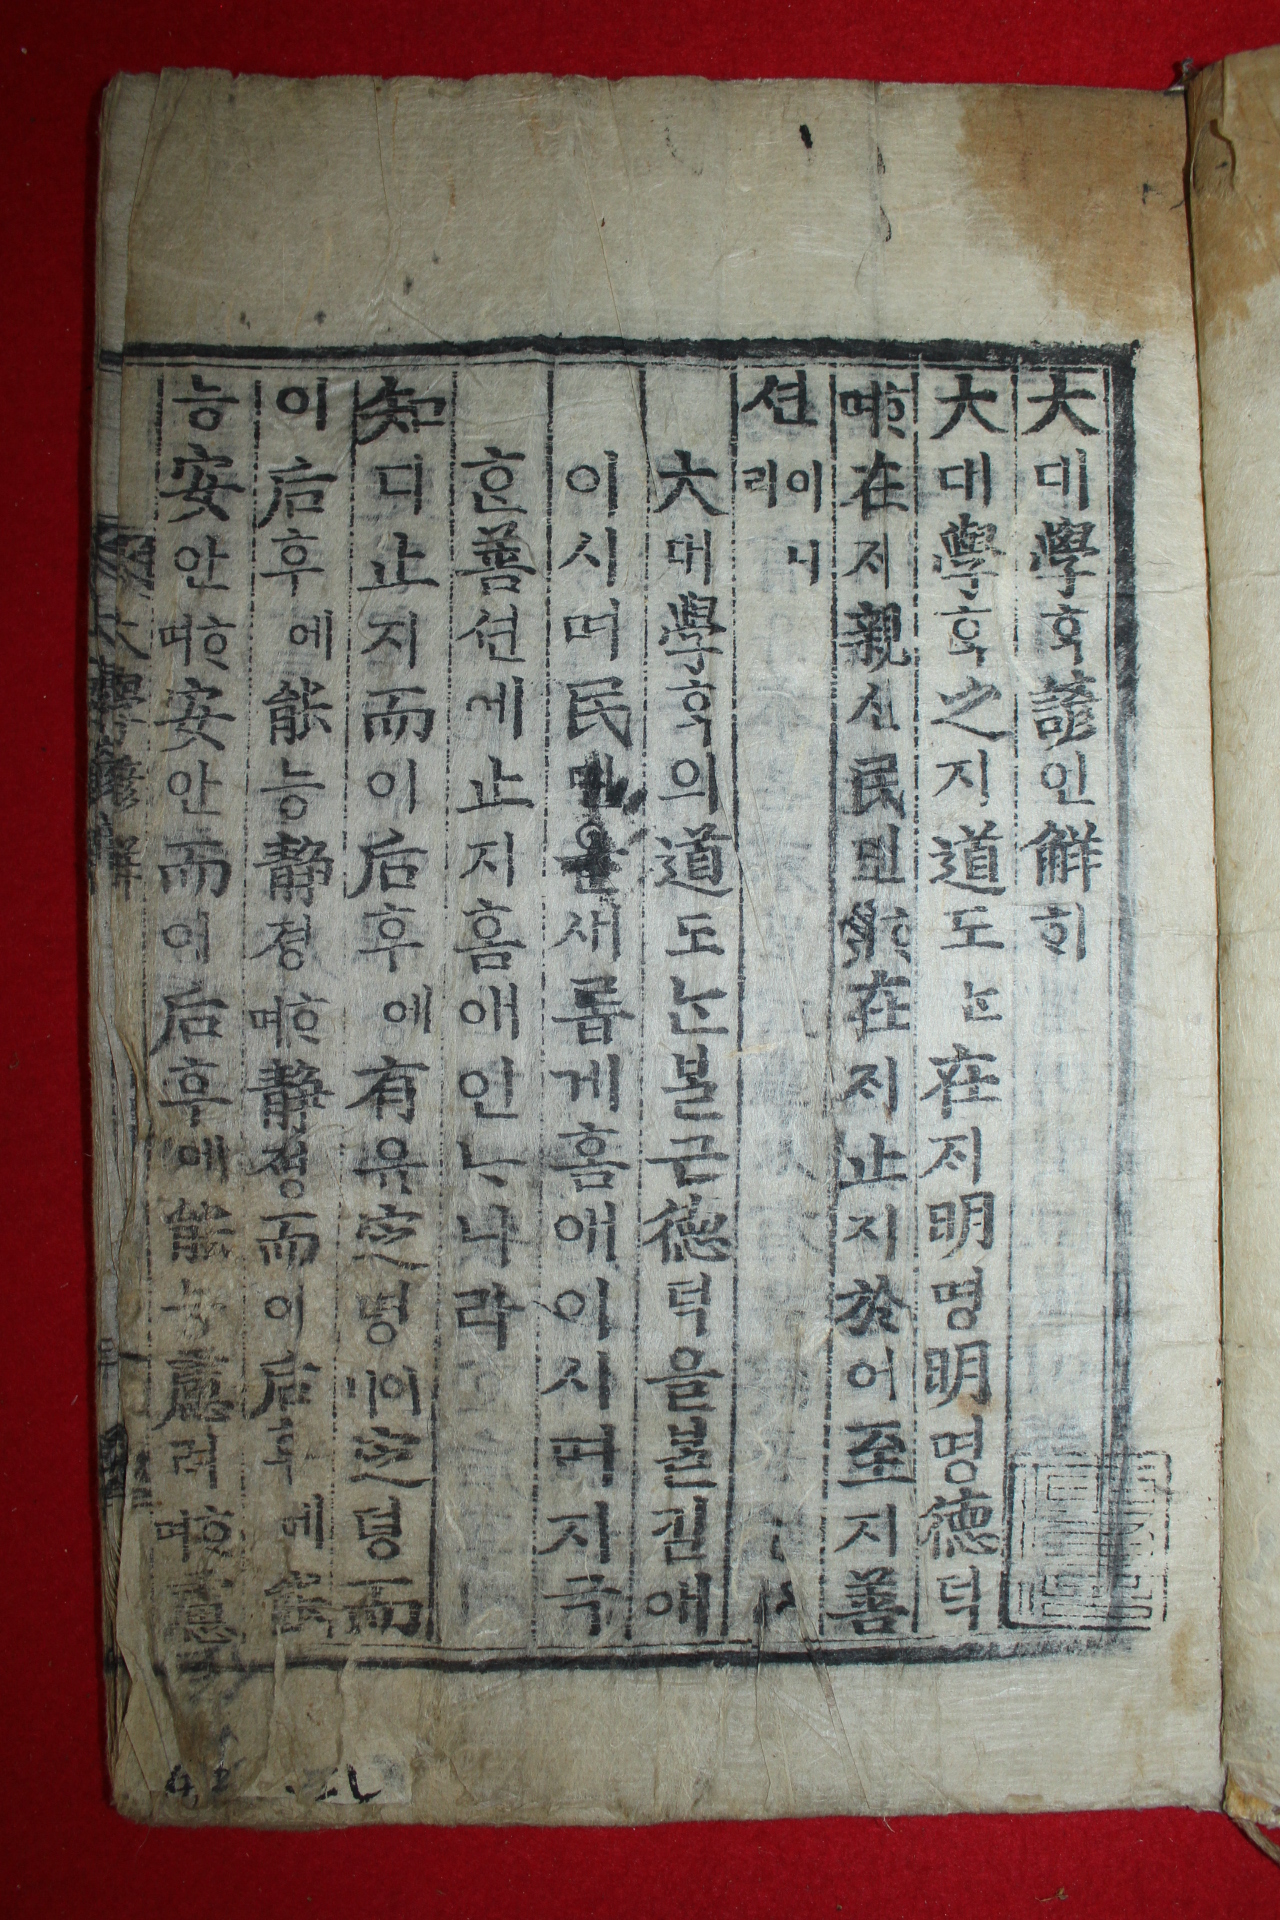 大대學ᄒᆞᆨ諺언解ᄒᆡ
大대學ᄒᆞᆨ之지道도ᄂᆞᆫ在ᄌᆡ明명明명德덕
ᄒᆞ며在ᄌᆡ親신民민ᄒᆞ며在ᄌᆡ止지於어至지善
션이니라
大대學ᄒᆞᆨ의道도ᄂᆞᆫ볼근德덕을ᄇᆞᆯ킴애
이시며民민을새롭게홈애이시며지극
ᄒᆞᆫ善션에止지홈애인ᄂᆞ니라
知디止지而이后후에有유定뎡이니定뎡而
이后후에能능靜졍ᄒᆞ며靜졍而이后후에能
능安안ᄒᆞ며安안而이后후에能능慮려ᄒᆞ며慮
大學諺解